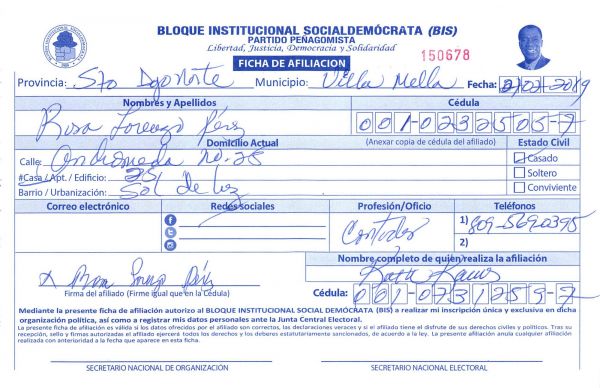 BLOQUE INSTITUCIONAL SOCIALDEMÓCRATA (BIS)
PARTIDO PEÑAGOMISTA
Libertad, Justicia, Democracia y Solidaridad
FICHA DE AFILIACION
150678
Provincia: Sto Dgo Norte Municipio: Villa Mella Fecha: 2/02/2019
Nombres y Apellidos Cédula
Rosa Lorenzo Pérez 001-0232505-7
Domicilio Actual (Anexar copia de cédula del afiliado) Estado Civil
Calle: Andromeda no. 25 Casado
#Casa / Apt. / Edificio: 25 Soltero
Barrio / Urbanización: Sol de Luz Conviviente
Correo electrónico Redes sociales Profesión/Oficio Teléfonos
Contador 1) 809-569-0395
2)
Nombre completo de quien realiza la afiliación
x Rosa Lorenzo Pérez
Firma del afiliado (Firme igual que en la Cédula) Cédula: 001-0731259-7
Mediante la presente ficha de afiliación autorizo al BLOQUE INSTITUCIONAL SOCIAL DEMÓCRATA (BIS) a realizar mi inscripción única y exclusiva en dicha
organización política, así como a registrar mis datos personales ante la Junta Central Electoral.
La presente ficha de afiliación es válida si los datos ofrecidos por el afiliado son correctos, las declaraciones veraces y si el afiliado tiene el disfrute de sus derechos civiles y políticos. Tras su
recepción, sello y firmas autorizadas el afiliado ejercerá todos los derechos y los deberes estatutariamente sancionados, de acuerdo a la ley. La presente afiliación anula cualquier afiliación
realizada con anterioridad a la fecha que aparece en esta ficha.
SECRETARIO NACIONAL DE ORGANIZACIÓN SECRETARIO NACIONAL ELECTORAL